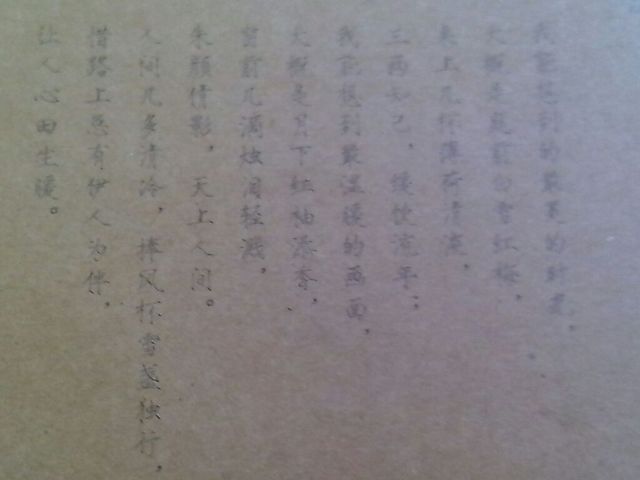 我能想到的最美的时光，
大概是庭前白雪红梅，
夹上几仟薄荷清凉，
三两知己，缓饮流年；
我能想到最温暖的画面，
大概是月下红袖添香，
窗前几滴烛泪轻溅。
朱颜倩影，天上人间。
人间几多清冷，捧风杯雪盏独行，
惜路上总有伊人为伴，
让人心由生暖。